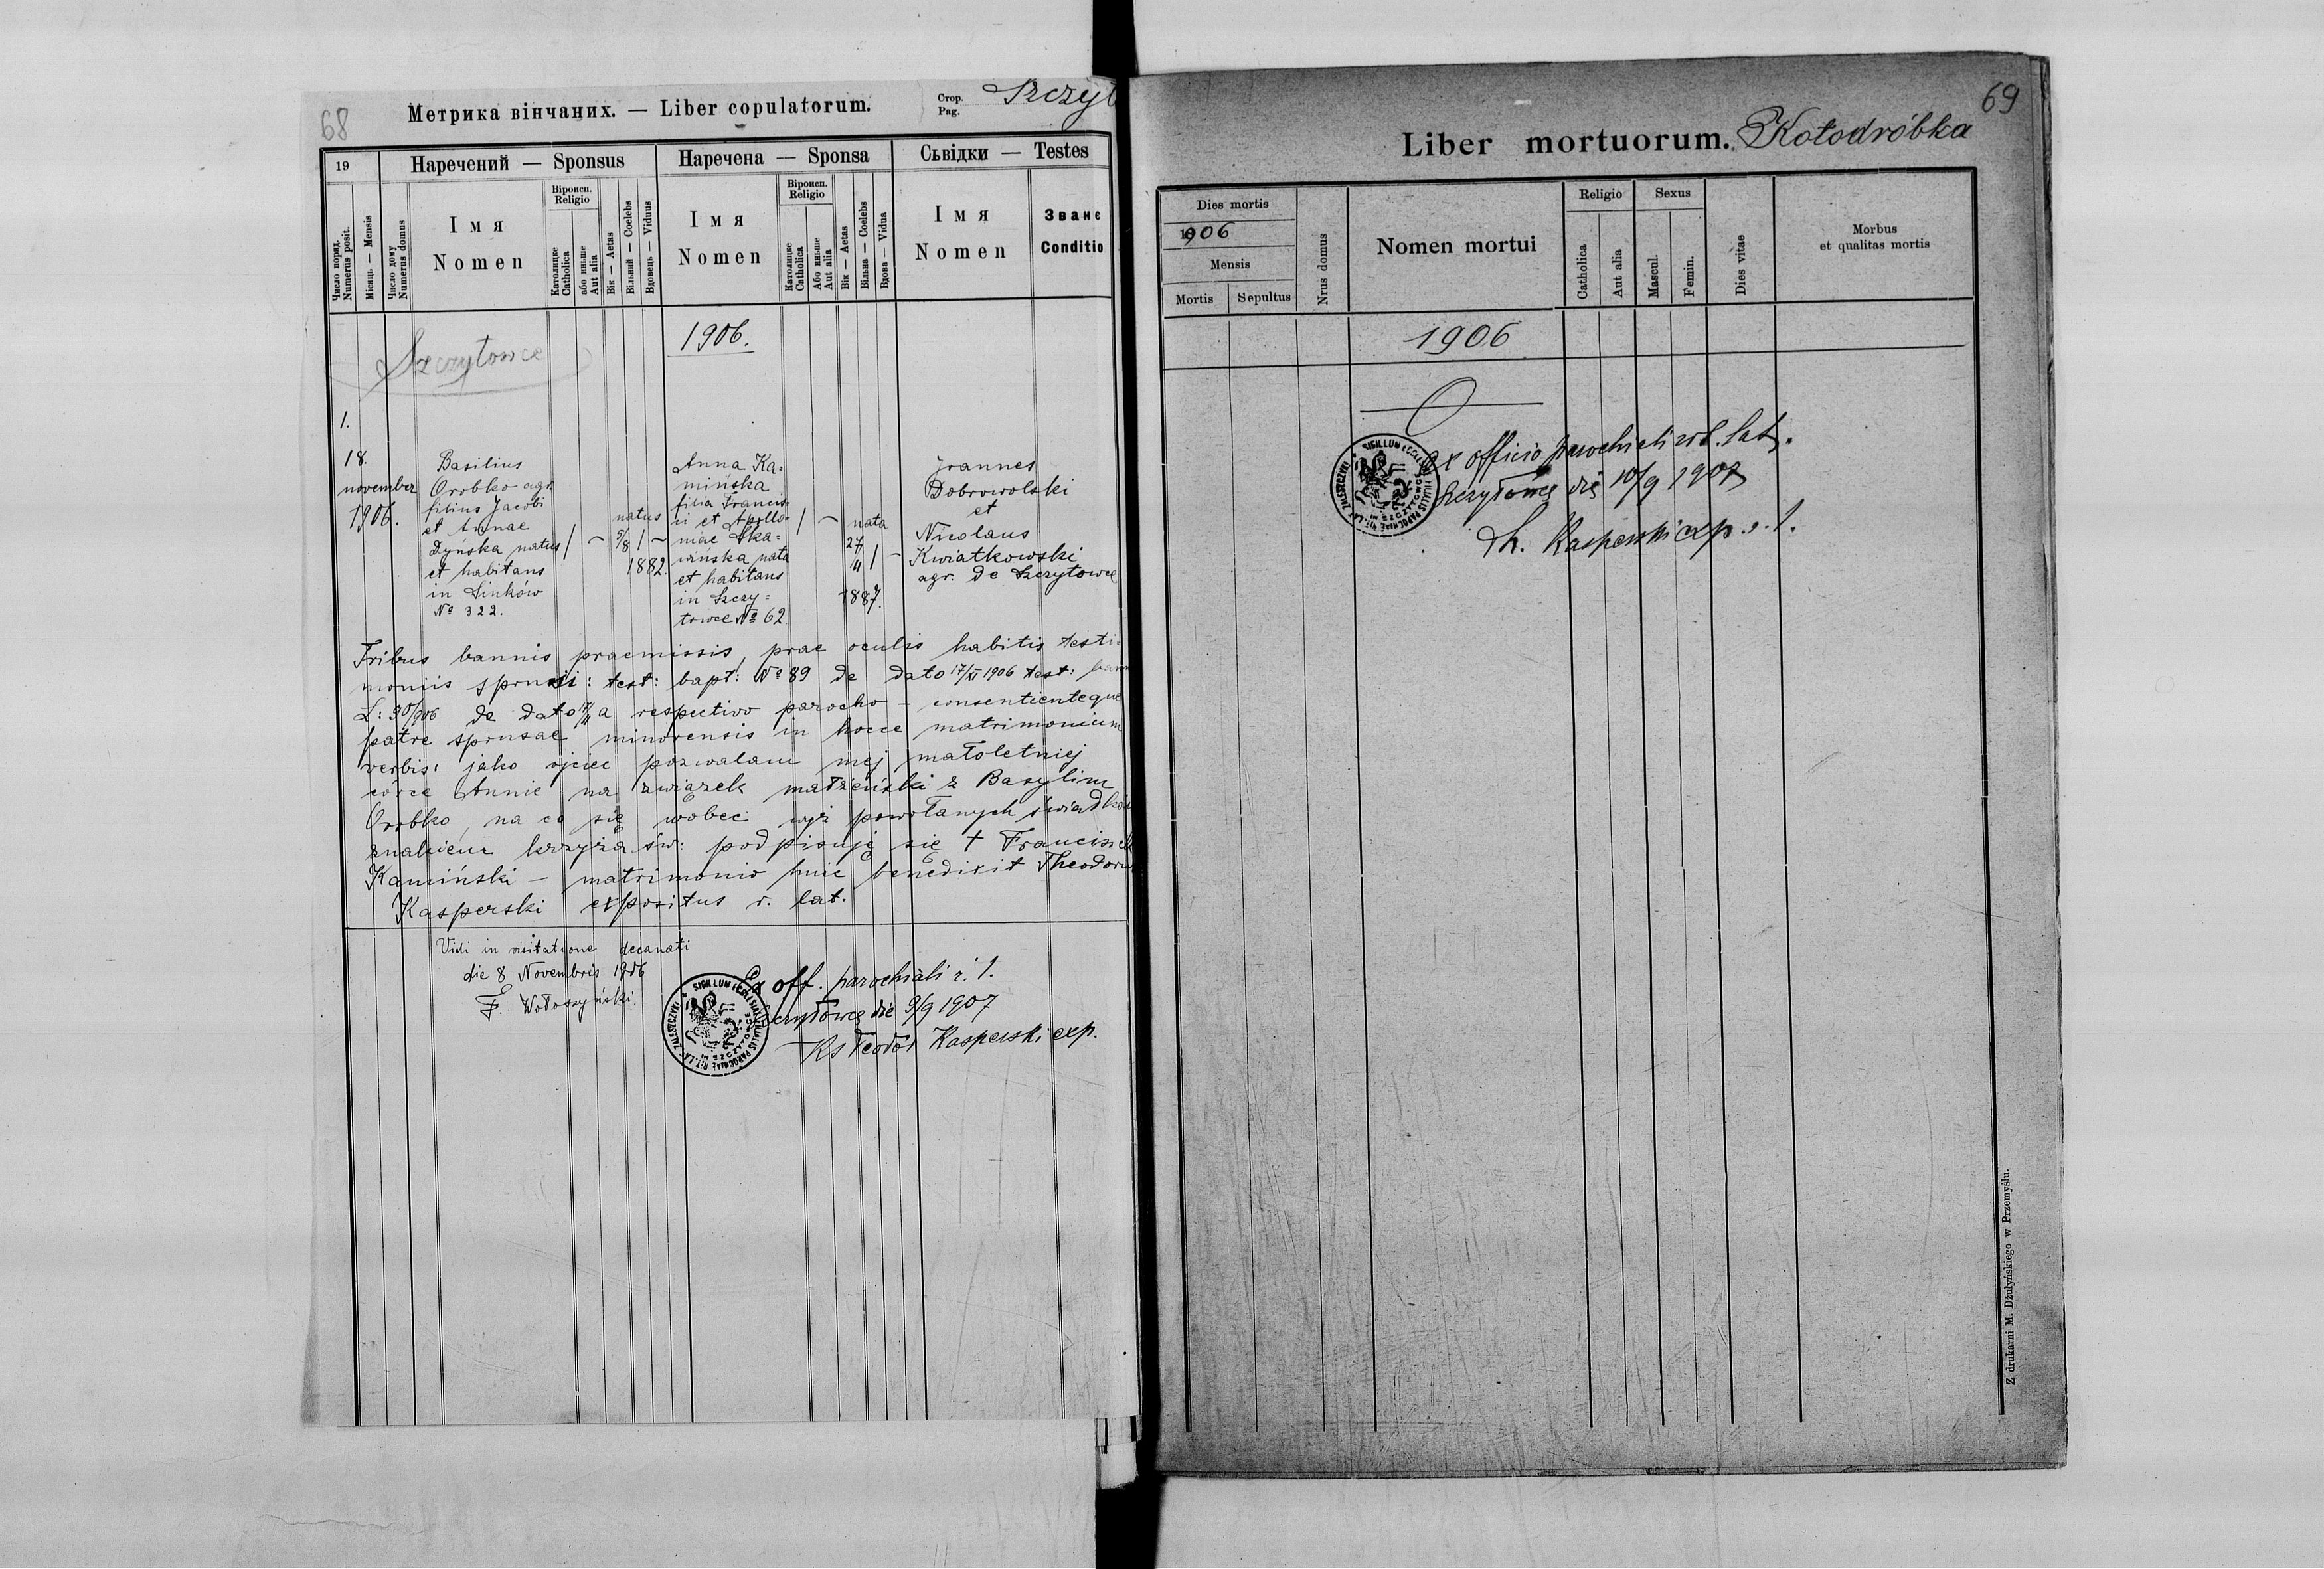 68
Метрика вінчаних. — Liber copulatorum.
Стор.
Pag.
Szczyt
19
Наречений — Sponsus
Наречена — Sponsa
Сьвідки — Testes
Число поряд.
Numerus posit.
Місяць. — Mensis
Число дому
Numerus domus
Імя
Nomen
Віроисп.
Religio
Католицке
Catholica
або иньше
Aut alia
Вік — Aetas
Вільний — Coelebs
Вдовець — Viduus
Імя
Nomen
Віроисп.
Religio
Католицке
Catholica
Або иньше
Aut alia
Вік — Aetas
Вільна — Coelebs
Вдова — Vidua
Імя
Nomen
Званє
Conditio
1906.
Szczytowce
1.
18.
november
1906.
Basilius
Orobko agr.
filius Jacobi
et Annae
Dyńska natus
et habitans
in Sinków
No 322.
natus
5/8
1882.
Anna Ka=
mińska
filia Francis=
ci et Apollo=
niae Ska=
wińska nata
et habitans
in Szczy=
towce No 62
nata
27
1887.
Joannes
Dobrowolski
et
Nicolaus
Kwiatkowski
agr. de Szczytowce
Tribus bannis praemissis, prae oculis habitis testi
moniis sponsi: test: bapt: No 89 de dato 17/XI 1906 test:
L: 90/906 de dato a respectivo parocho – consentienteque
patre sponsae minorensis in hocce matrimonium
verbis: jako ojciec pozwalam mej małoletniej
córce Annie na związek małżeński z Basylim
Orobko, na co się wobec wyż powołanych świadków
znakiem krzyża św: podpisuję się + Franciszek
Kamiński – matrimonio huic benedixit Theodorus
Kasperski expositus r. lat.
Vidi in visitatione decanati
die 8 Novembris 1906
F. Wołoszyński
Ex off. parochiali r. l.
Szczytowce die 9/9 1907
Ks Teodor Kasperski exp.
69
Liber mortuorum. Kołodróbka
Dies mortis
1906
Mensis
Mortis
Sepultus
Nrus domus
Nomen mortui
Religio
Catholica
Aut alia
Sexus
Mascul.
Femin.
Dies vitae
Morbus
et qualitas mortis
1906
Ex officio parochiali rit. lat.
Szczytowce die 10/9 1907
Th. Kasperski exp. r. l.
Z drukarni M. Dżułyńskiego w Przemyślu.